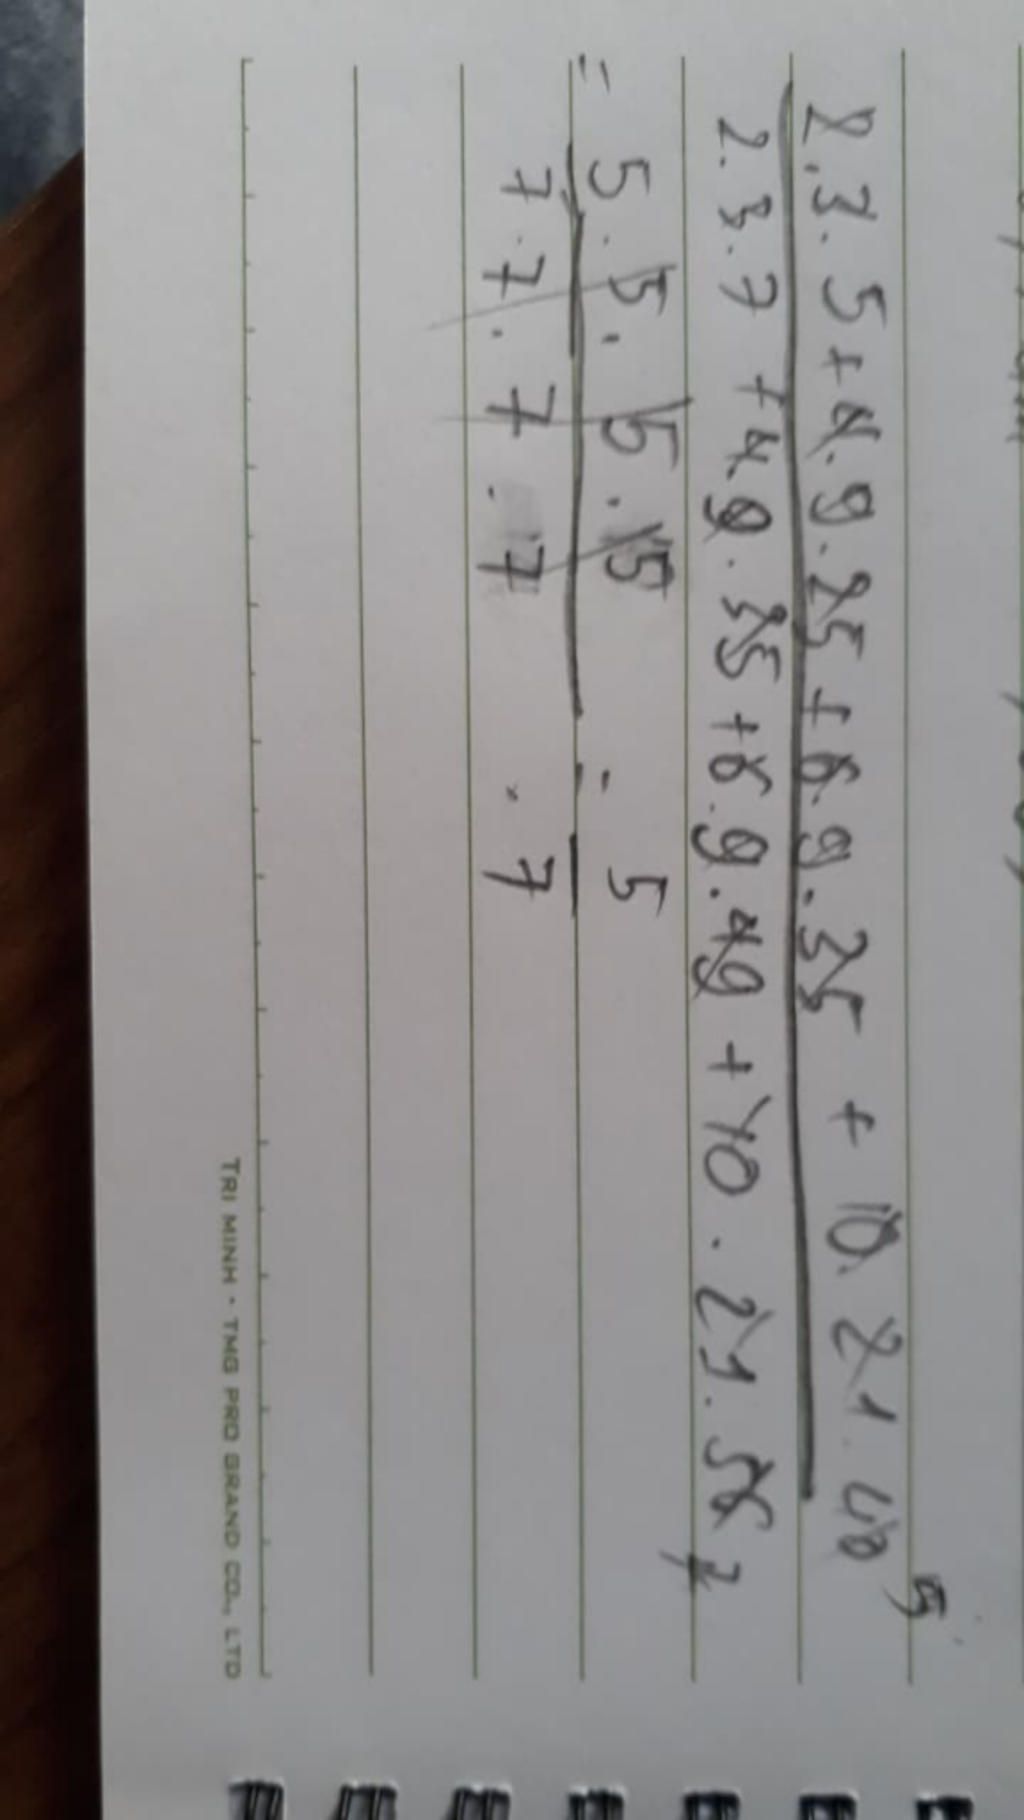 2.3.5+4.9.25+6.9.35 + 10.21.40 5
2.3.7 +4.9.35+6.9.49 + 10.21.56 7
= 5.5.5.5 = 5
7.7.7.7 . 7
TRI MINH • TMG PRO GRAND CO., LTD